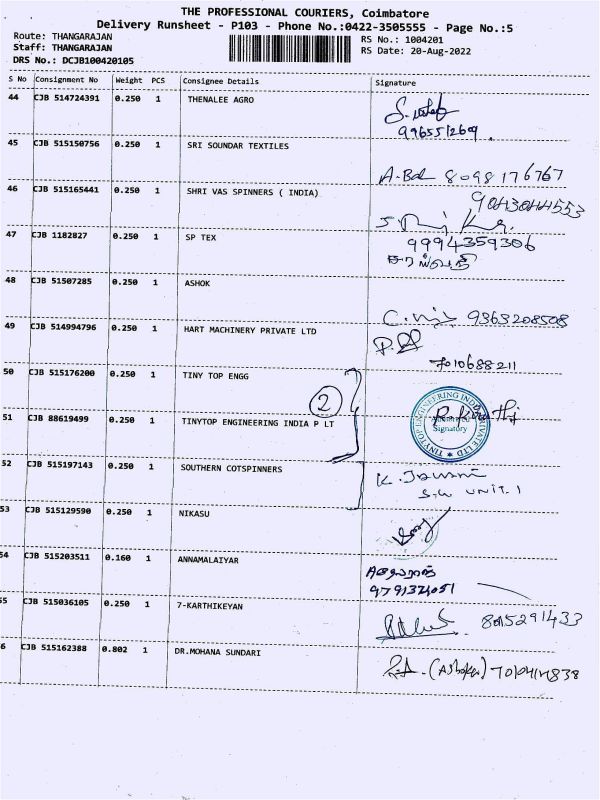 THE PROFESSIONAL COURIERS, Coimbatore
Delivery Runsheet - P103 - Phone No.:0422-3505555 - Page No.:5
Route: THANGARAJAN
RS No.: 1004201
Staff: THANGARAJAN
RS Date: 20-Aug-2022
DRS No.: DCJB100420105
S No Consignment No Weight PCS Consignee Details Signature
44 CJB 514724391 0.250 1 THENALEE AGRO
996551269
45 CJB 515150756 0.250 1 SRI SOUNDAR TEXTILES
8098176767
46 CJB 515165441 0.250 1 SHRI VAS SPINNERS ( INDIA)
9043044553
47 CJB 1182827 0.250 1 SP TEX
9994359306
48 CJB 51507285 0.250 1 ASHOK
9363208508
49 CJB 514994796 0.250 1 HART MACHINERY PRIVATE LTD
7010688211
50 CJB 515176200 0.250 1 TINY TOP ENGG
2
51 CJB 88619499 0.250 1 TINYTOP ENGINEERING INDIA P LT
TINYTOP ENGINEERING INDIA PRIVATE LTD
Signatory
52 CJB 515197143 0.250 1 SOUTHERN COTSPINNERS
UNIT. 1
53 CJB 515129590 0.250 1 NIKASU
54 CJB 515203511 0.160 1 ANNAMALAIYAR
55 CJB 515036105 0.250 1 7-KARTHIKEYAN
8015291433
6 CJB 515162388 0.802 1 DR.MOHANA SUNDARI